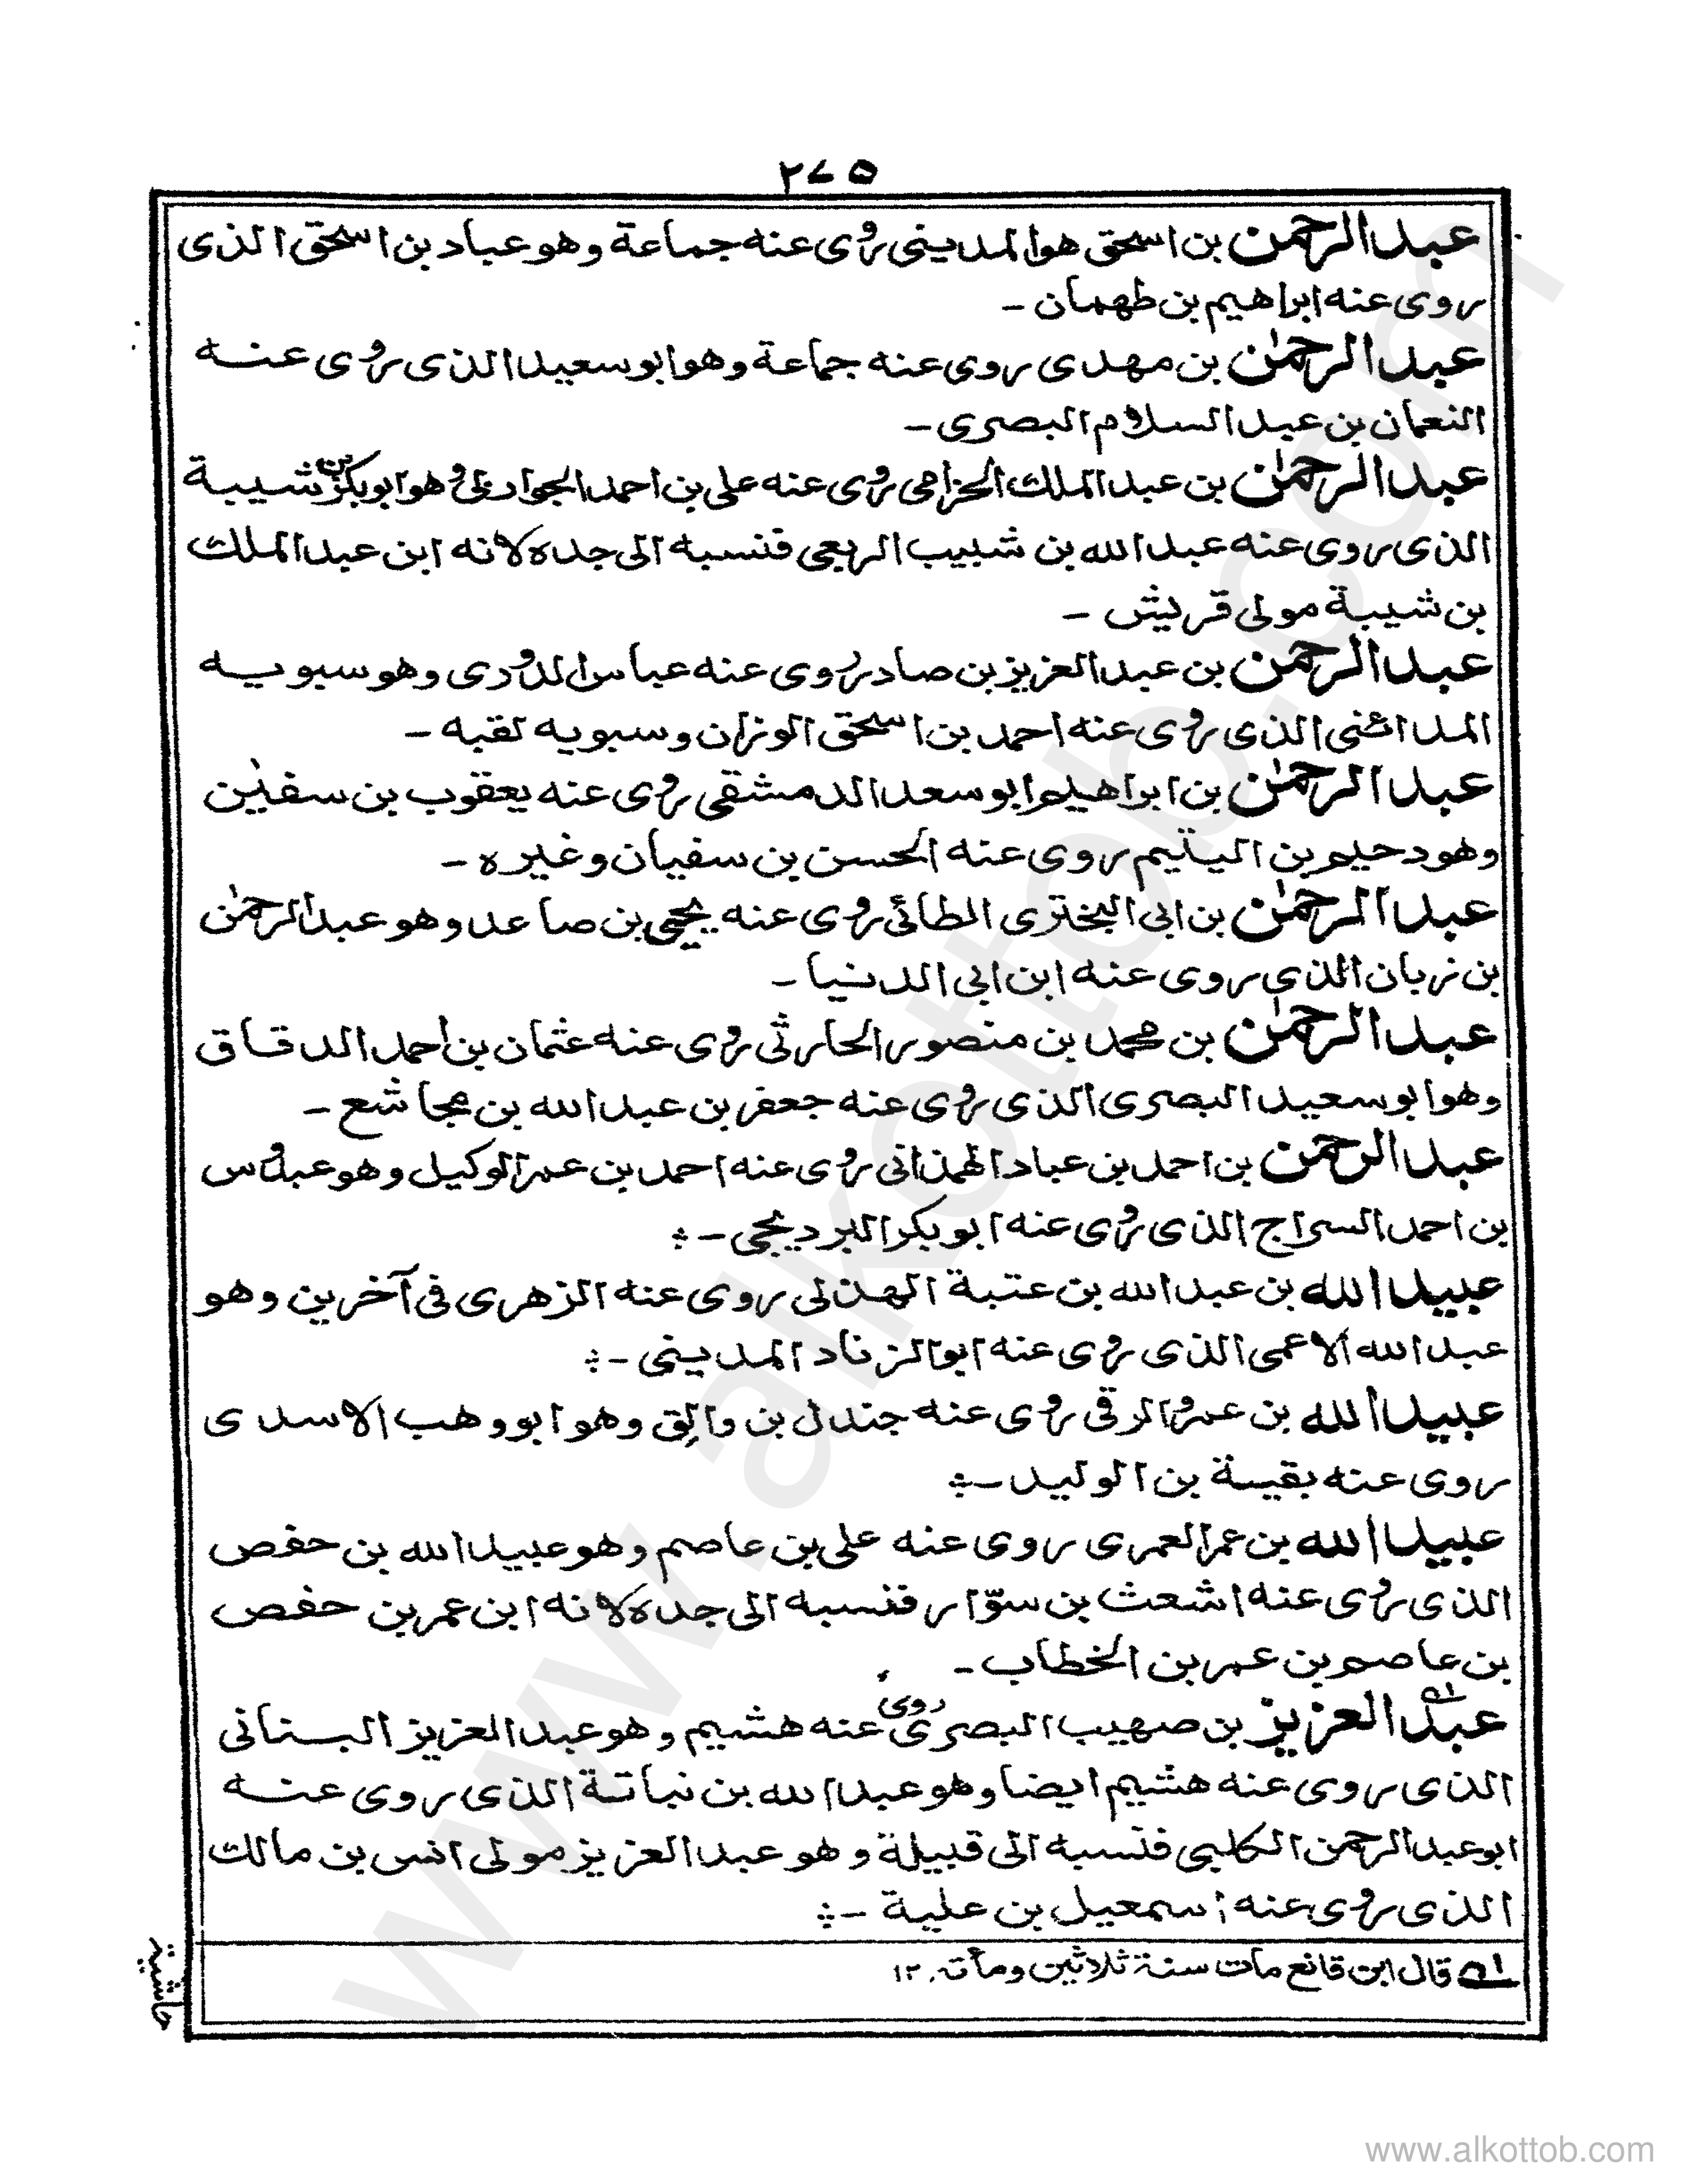 ٢٧٥
عبد الرحمن بن اسحق هو المديني روى عنه جماعة وهو عباد بن اسحق الذى
روى عنه ابراهيم بن طهمان -
عبد الرحمٰن بن مهدى روى عنه جماعة وهو ابو سعيد الذى روى عنه
النعمان بن عبد السلام البصرى -
عبد الرحمٰن بن عبد الملك الحزامى روى عنه على بن احمد الجواربى وهو ابو بكر بن شيبة
الذى روى عنه عبد الله بن شبيب الربعى فنسبه الى جده لانه ابن عبد الملك
بن شيبة مولى قريش -
عبد الرحمن بن عبد العزيز بن صادر روى عنه عباس الدورى وهو سبويه
المدائنى الذى روى عنه احمد بن اسحق الوزان وسبويه لقبه -
عبد الرحمٰن بن ابراهيم ابو سعد الدمشقى روى عنه يعقوب بن سفيٰن
وهو دحيم بن اليتيم روى عنه الحسن بن سفيان وغيره -
عبد الرحمٰن بن ابى البخترى الطائى روى عنه يحيى بن صاعد وهو عبد الرحمٰن
بن زبان الذى روى عنه ابن ابى الدنيا -
عبد الرحمٰن بن محمد بن منصور الحارثى روى عنه عثمان بن احمد الدقاق
وهو ابو سعيد البصرى الذى روى عنه جعفر بن عبد الله بن مجاشع -
عبد الرحمن بن احمد بن عباد الهمذانى روى عنه احمد بن عمر الوكيل وهو عبدوس
بن احمد السراج الذى روى عنه ابو بكر البرديجى -
عبيد الله بن عبد الله بن عتبة الهذلى روى عنه الزهرى فى آخرين وهو
عبد الله الاعمى الذى روى عنه ابو الزناد المدينى -
عبيد الله بن عمرو الرقى روى عنه جندل بن والق وهو ابو وهب الاسدى
روى عنه بقية بن الوليد -
عبيد الله بن عمر العمرى روى عنه على بن عاصم وهو عبيد الله بن حفص
الذى روى عنه اشعث بن سوّار فنسبه الى جده لانه ابن عمر بن حفص
بن عاصم بن عمر بن الخطاب -
عبد العزيز بن صهيب البصرى روى عنه هشيم وهو عبد العزيز البنانى
الذى روى عنه هشيم ايضا وهو عبد الله بن نباتة الذى روى عنه
ابو عبد الرحمن الكلبى فنسبه الى قبيلة وهو عبد العزيز مولى انس بن مالك
الذى روى عنه اسمعيل بن علية -
حاشية
١ه قال ابن قانع مات سنة ثلاثين ومأته. ١٢
www.alkottob.com
www.alkottob.com